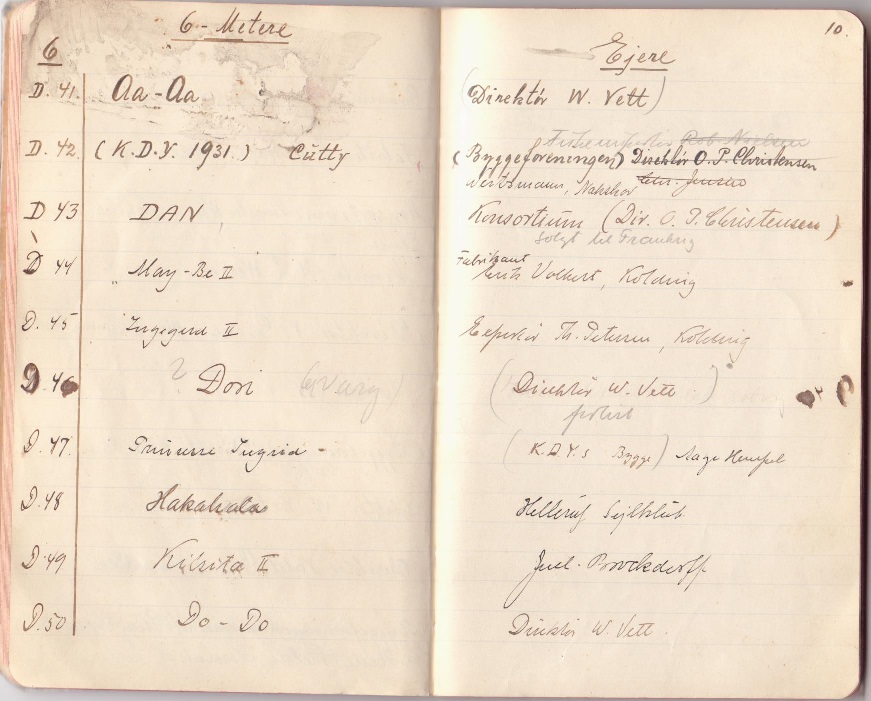 6-Metere
10.
6
Ejere
D. 41. Aa-Aa (Direktör W. Vett)
D. 42. (K.D.Y. 1931.) Cutty (Byggeforeningen) Direktör O.P. Christensen
Nakskov
D 43 DAN Konsortium (Dir. O. P. Christensen)
solgt til
D 44 May-Be II Fabrikant
Volkert, Kolding
D. 45 Ingegerd II Th. Petersen, Kolding
D. 46 ? Dori (Direktör W. Vett)
D. 47. Prinsesse Ingrid - (K.D.Y.s Bygge) Aage Hempel
D. 48 Hakahala Hellerup Sejlklub
D. 49 II Juel-Brockdorff
D. 50 Do-Do Direktör W. Vett.